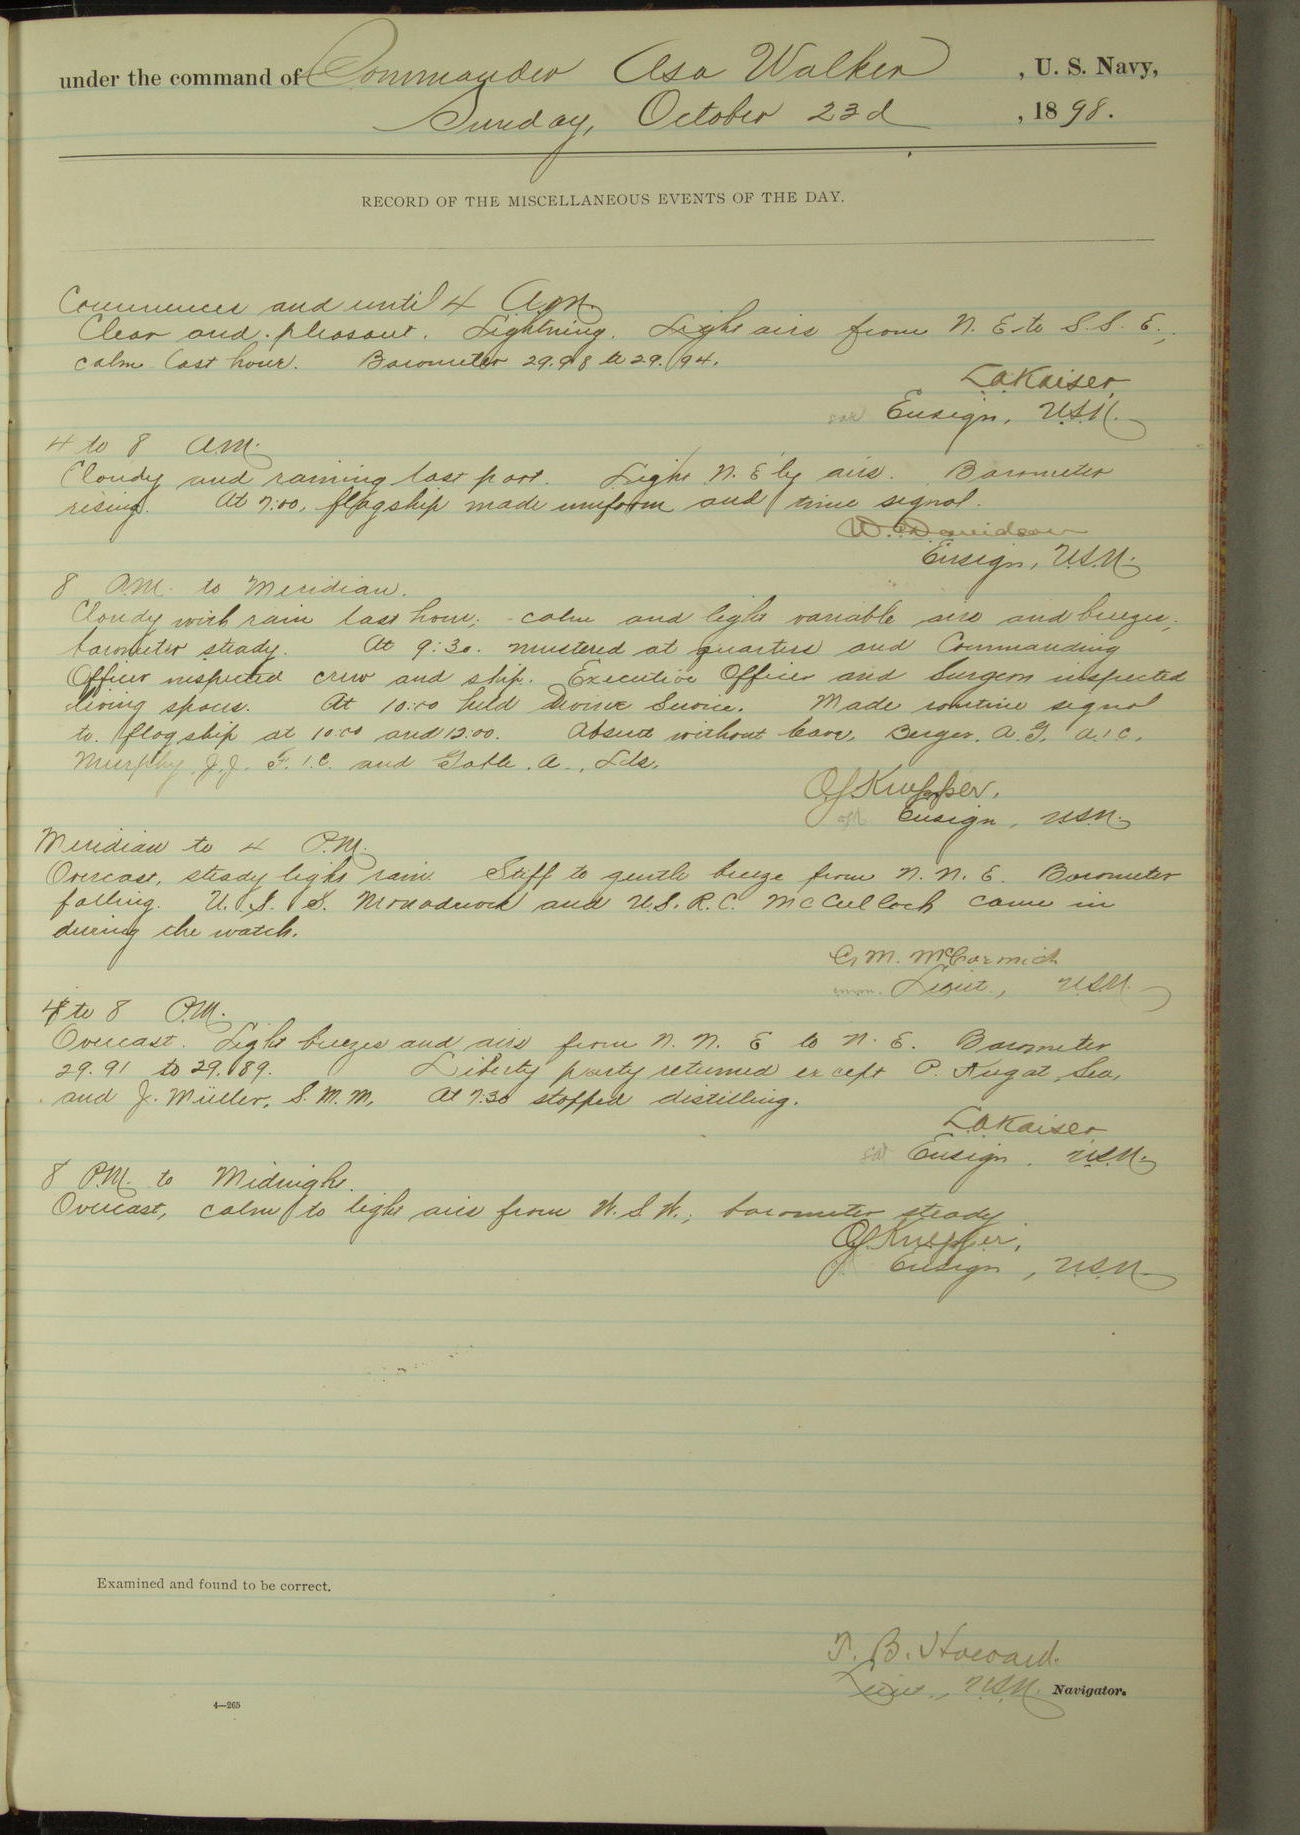 under the command of Commander Asa Walker, U. S. Navy,
Sunday, October 23d, 1898.
RECORD OF THE MISCELLANEOUS EVENTS OF THE DAY.
Commences and until 4 A.M.
Clear and pleasant. Lightning. Light airs from N. E. to S. S. E.;
calm last hour. Barometer 29.98 to 29.94.
L A Kaiser
Ensign, U.S.N.
4 to 8 A.M.
Cloudy and raining last part. Light N. E'ly airs. Barometer
rising. At 7.00, flagship made uniform and time signal.
W. C. Davidson
Ensign, U.S.N.
8 A.M. to Meridian.
Cloudy with rain last hour; calm and light variable airs and breezes;
barometer steady. At 9:30. mustered at quarters and Commanding
Officer inspected crew and ship. Executive Officer and Surgeon inspected
living spaces. At 10:00 held Divine Service. Made routine signal
to flagship at 10:00 and 12:00. Absent without leave, Berger, A. G,
Murphy, J. J. F. 1. C. and Gable. A., Lds.
O J Knepper,
Ensign, U.S.N.
Meridian to 4 P.M.
Overcast, steady light rain Stiff to gentle breeze from N. N. E. Barometer
falling. U. S. S. Monadnock and U.S. R. C. McCulloch came in
during the watch.
C. M. McCormick
Lieut., U.S.N.
4 to 8 P.M.
Overcast. Light breezes and airs from N. N. E to N. E. Barometer
29.91 to 29.89. Liberty party returned except P. Sea,
and J. Müller, S. M. M. At 7.30 stopped distilling.
L A Kaiser
Ensign. U.S.N.
8 P.M. to Midnight.
Overcast, calm to light airs from W. S. W.; barometer steady
O J Knepper,
Ensign, U.S.N.
Examined and found to be correct.
T. B. Howard.
Lieut., U.S.N. Navigator.
4—265